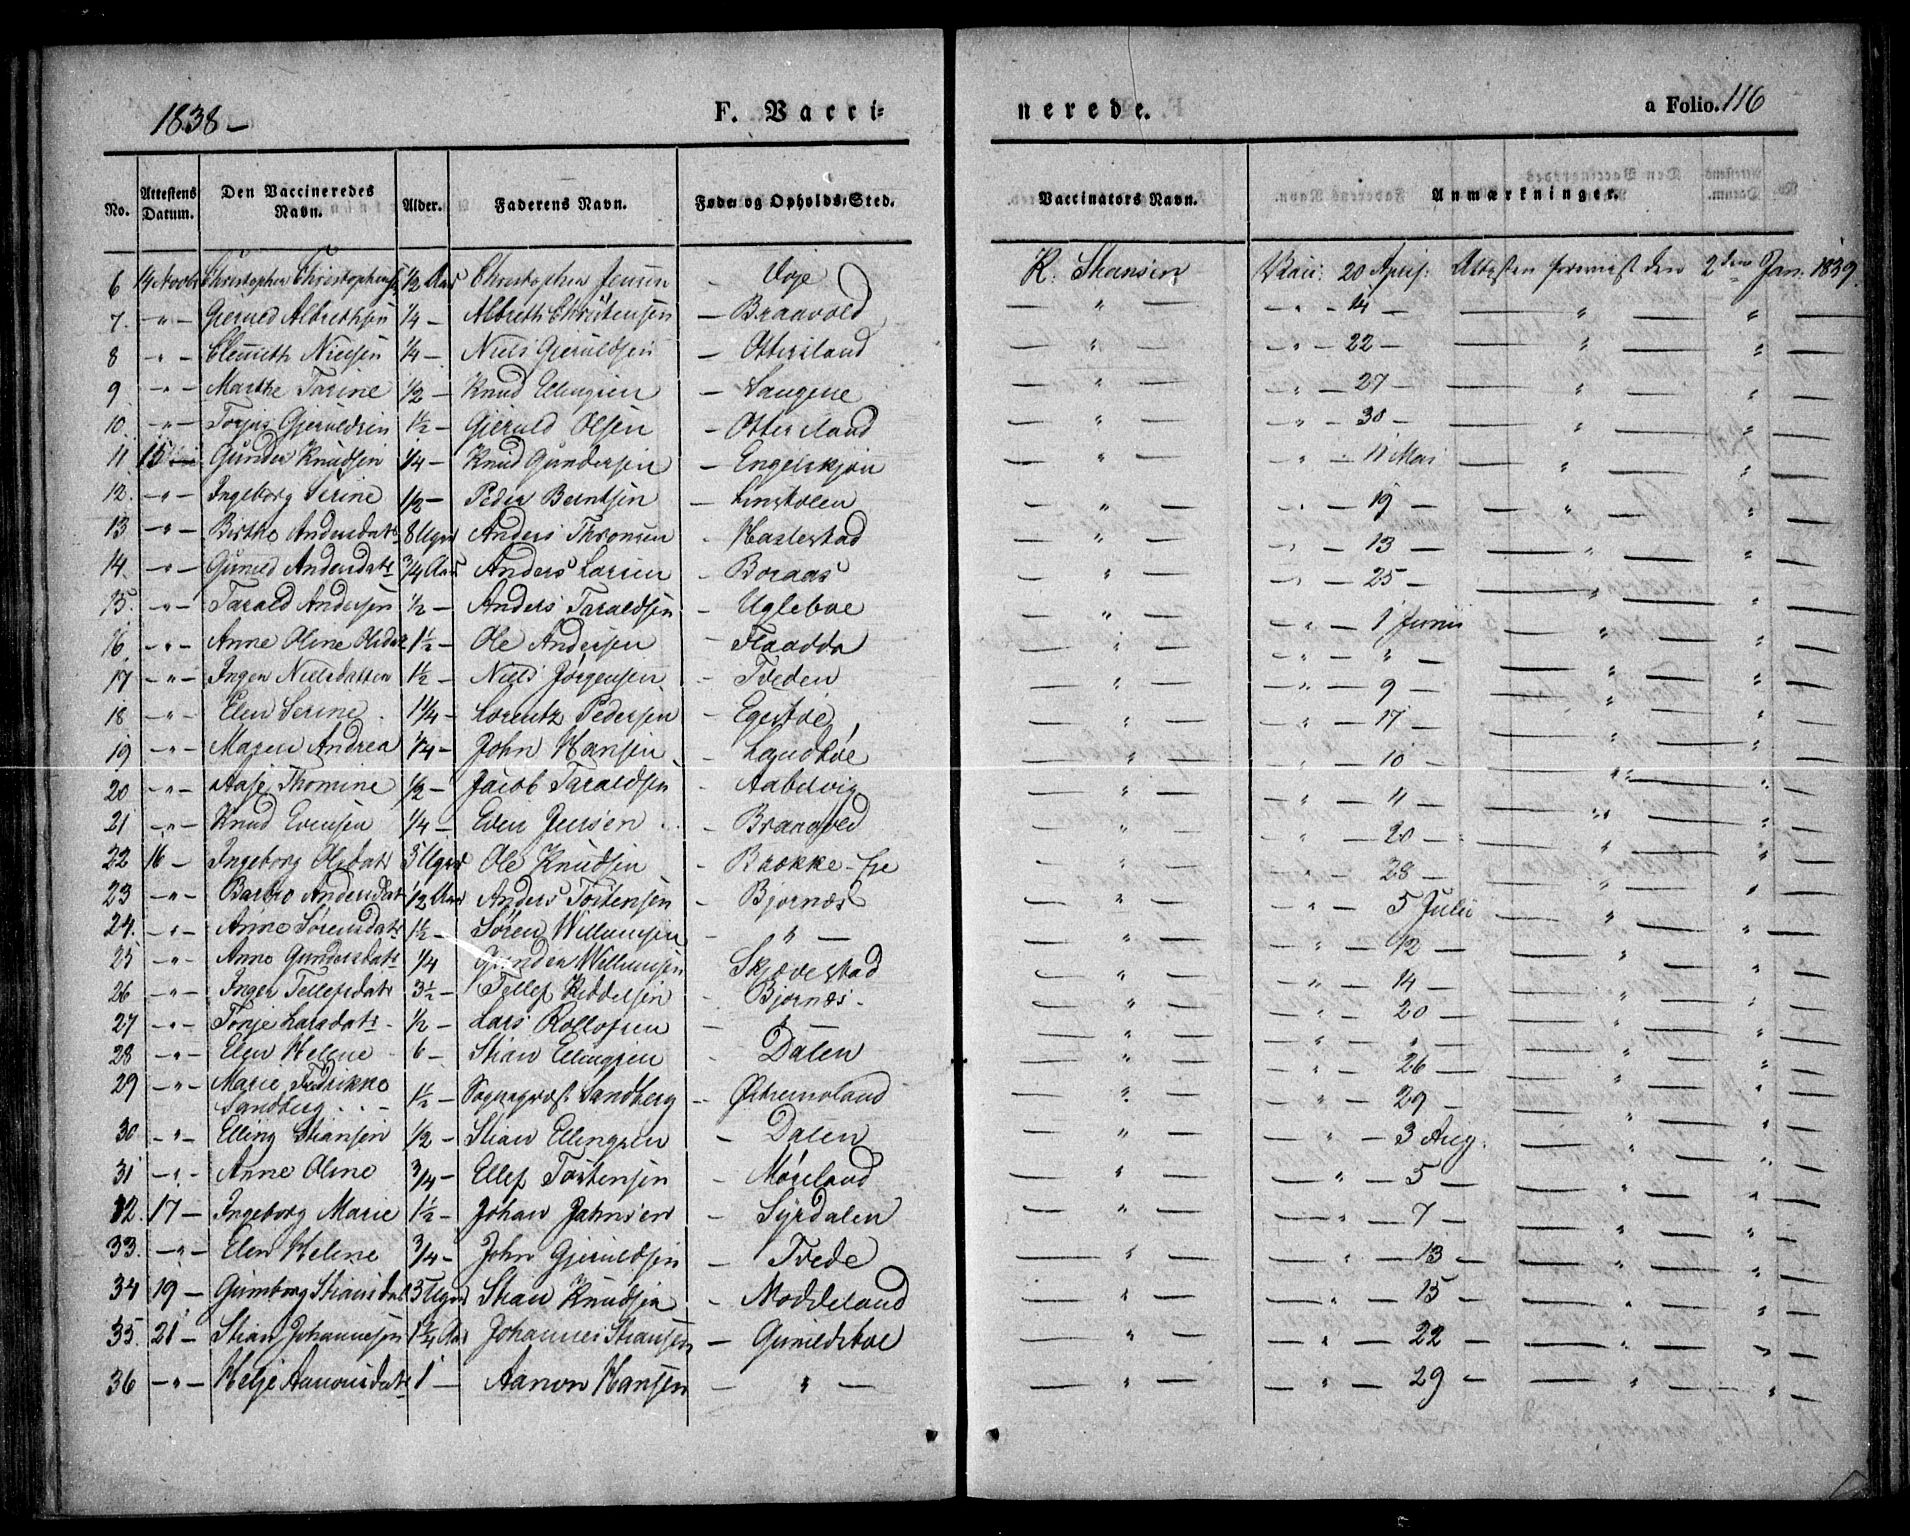 1838 –
F. Vacci=
nerede.
a Folio. 116
No. Attestens Datum. Den Vaccineredes Navn. Alder. Faderens Navn. Føde= og Opholds=Sted. Vaccinators Navn. Anmærkninger.
6 14 Novbr Christopher Christophersen 1/2 Aar Christopher Jensen – Voje K. Stiansen Vacc: 20 April: Attesten forevist den 2den Jan: 1839.
7. – " – Gjeruld Albrethsen 1/4 – Albreth Christensen – Braavold — " — – " – 14 – — " — "
8 – " – Clemeth Nielsen 1/4 – Niels Gjeruldsen – Ottersland — " — – " – 22 – — " — "
9 – " – Marthe Tarine 1/2 – Knud Ellingsen – Langene — " — – " – 27 – — " — "
10. – " – Torjus Gjeruldsen 1½ – Gjeruld Olsen – Ottersland — " — – " – 30 – — " — "
11 15 – Gunder Knudsen 1/4 – Knud Gundersen – Engelskjøn — " — – " – 11 Mai — " — "
12. – " – Ingeborg Serine 1/2 – Peder Berntsen – Linstølen — " — – " – 19 – — " — "
13 – " – Birthe Andersdatr 8 Uger Anders Thronsen – Haslestad — " — – " – 13 – — " — "
14. – " – Gunild Andersdatr 3/4 Aar Anders Larsen – Boraas — " — – " – 25 – — " — "
15. – " – Tarald Andersen 1/2 – Anders Taraldsen – Ugleboe — " — – " – 1 Junii — " — "
16 – " – Anne Oline Olsdatr 1½ – Ole Andersen – Flaadda — " — – " – " – — " — "
17 – " – Inger Nielsdatter 1½ – Niels Jørgensen – Tveden — " — – " – 9 – — " — "
18 – " – Elen Serine 1¼ – Lorentz Pedersen – Egestøe — " — – " – 17 – — " — "
19 – " – Maren Andrea 1/4 – John Hansen – Landbøe — " — – " – 10 – — " — "
20 – " – Aase Thomine 1/2 – Jacob Taraldsen – Aabelvig — " — – " – 11 – — " — "
21 – " – Knud Evensen 1/4 – Even Jensen – Braavold — " — – " – 20 – — " — "
22 16 – Ingeborg Olsdatr 5 Uger Ole Knudsen – Brokke – " – 28 – — " — "
23 – " – Barbro Andersdatr 1/2 Aar Anders Tostensen – Bjornæs — " — – " – 5 Julii — " — "
24. – " – Anne Sørensdatr 1½ – Søren Willumsen – " – — " — – " – 12 – — " — "
25 – " – Anne Gundersdatr 1/4 Gunder Willumsen Skjævestad — " — – " – 14 – — " — "
26 – " – Inger Tellefsdatr 3½ – Tellef Kiddelsen – Bjornæs – — " — – " – 20 – — " — "
27 – " – Tonje Larsdatr – 1/2 – Lars Rollofsen – " – — " — – " – " – — " — "
28 – " – Elen Helene – 6 – Stian Ellingsen – Dalen — " — – " – 26 – — " — "
29 – " – Marie Fredrikke Sandberg . . – 1½ – Sognepræst Sandberg – Østremoland — " — – " – 29 – — " — "
30 – " – Elling Stiansen 1/2 – Stian Ellingsen – Dalen — " — – " – 3 Aug: — " — "
31 – " – Anne Oline 3/4 – Ellef Tostensen – Møreland — " — – " – 5 – — " — "
32. 17 – Ingeborg Marie 1½ – Johan Jahnsen – Syrdalen — " — – " – 7 – — " — "
33. – " – Elen Helene 3/4 – John Gjeruldsen – Tvede — " — – " – 13 – — " — "
34 19 – Gunborg Stiansdatr 5 Uger Stian Knudsen – Moddeland — " — – " – 15 – — " — "
35. 21 – Stian Johannesen 1¾ Aar Johannes Stiansen – Gunildsboe — " — – " – 22 – — " — "
36 – " – Helje Aanonsdatr 1 – Aanon Hansen – " – — " — – " – 29 – — " — "